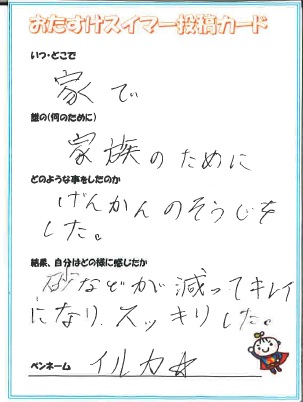 おたすけスイマー投稿カード
いつ・どこで
家で
誰の(何のために)
家族のために
どのような事をしたのか
げんかんのそうじを
した。
結果、自分はどの様に感じたか
砂などが減ってキレイ
になり、スッキリした。
ペンネーム イルカ☆